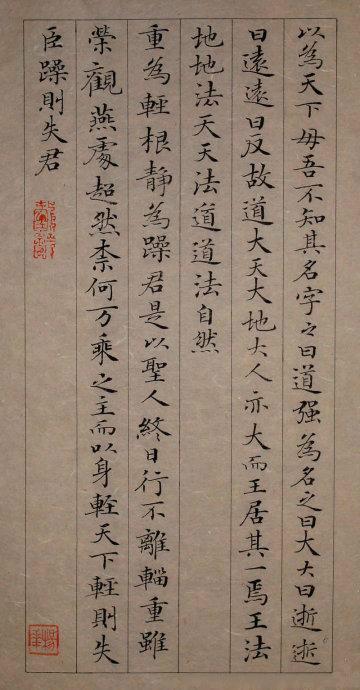 以為天下母吾不知其名字之曰道强為名之曰大大曰逝逝
曰遠遠曰反故道大天大地大人亦大而王居其一焉王法
地地法天天法道道法自然
重為輕根靜為躁君是以聖人終日行不離輜重雖
榮觀燕處超然柰何万乘之主而以身輕天下輕則失
臣躁則失君